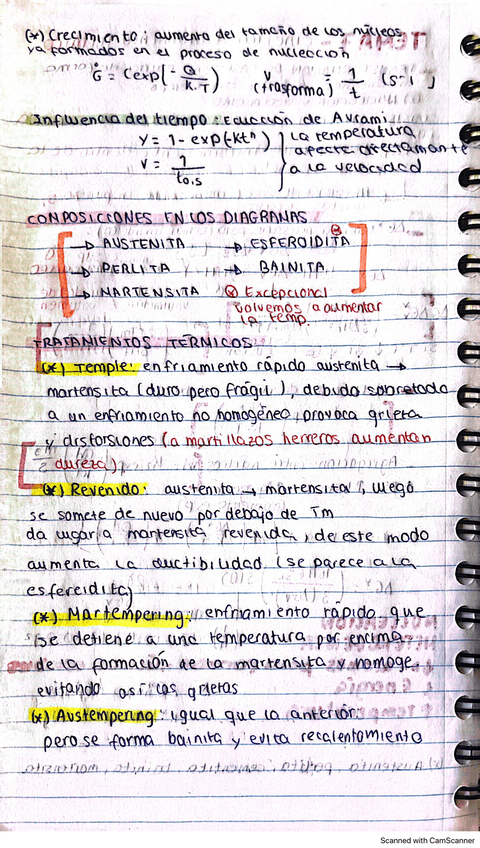 (*) Crecimiento: aumento del tamaño de los núcleos
ya formados en el proceso de nucleación
Ġ = C exp(-Q/K.T) V (trasforma) = 1/t (s-1)
Influencia del tiempo: Ecucción de Avrami
y = 1 - exp(-kt^n) } la temperatura
afecta directamante
V = 1/t0,5 a la velocidad
COMPOSICCIONES EN LOS DIAGRAMAS
→ AUSTENITA → ESFEROIDITA
→ PERLITA → BAINITA
→ MARTENSITA ⊗ Excepcional
volvemos a aumentar
la temp.
TRATAMIENTOS TÉRMICOS
(*) Temple: enfriamiento rápido austenita →
martensita (duro pero frágil), debido sobretodo
a un enfriamiento no homogéneo, provoca grieta
y distorsiones (a martillazos herreros aumentan
dureza)
(*) Revenido: austenita → martensita, luego
se somete de nuevo por debajo de Tm
da lugar a martensita revenida, de este modo
aumenta la ductibilidad (se parece a la
esfereidita)
(*) Martempering: enfriamiento rápido que
se detiene a una temperatura por encima
de la formación de la martensita y homoge.
evitando así las grietas
(*) Austempering: igual que la anterior
pero se forma bainita y evita recalentamiento
Scanned with CamScanner